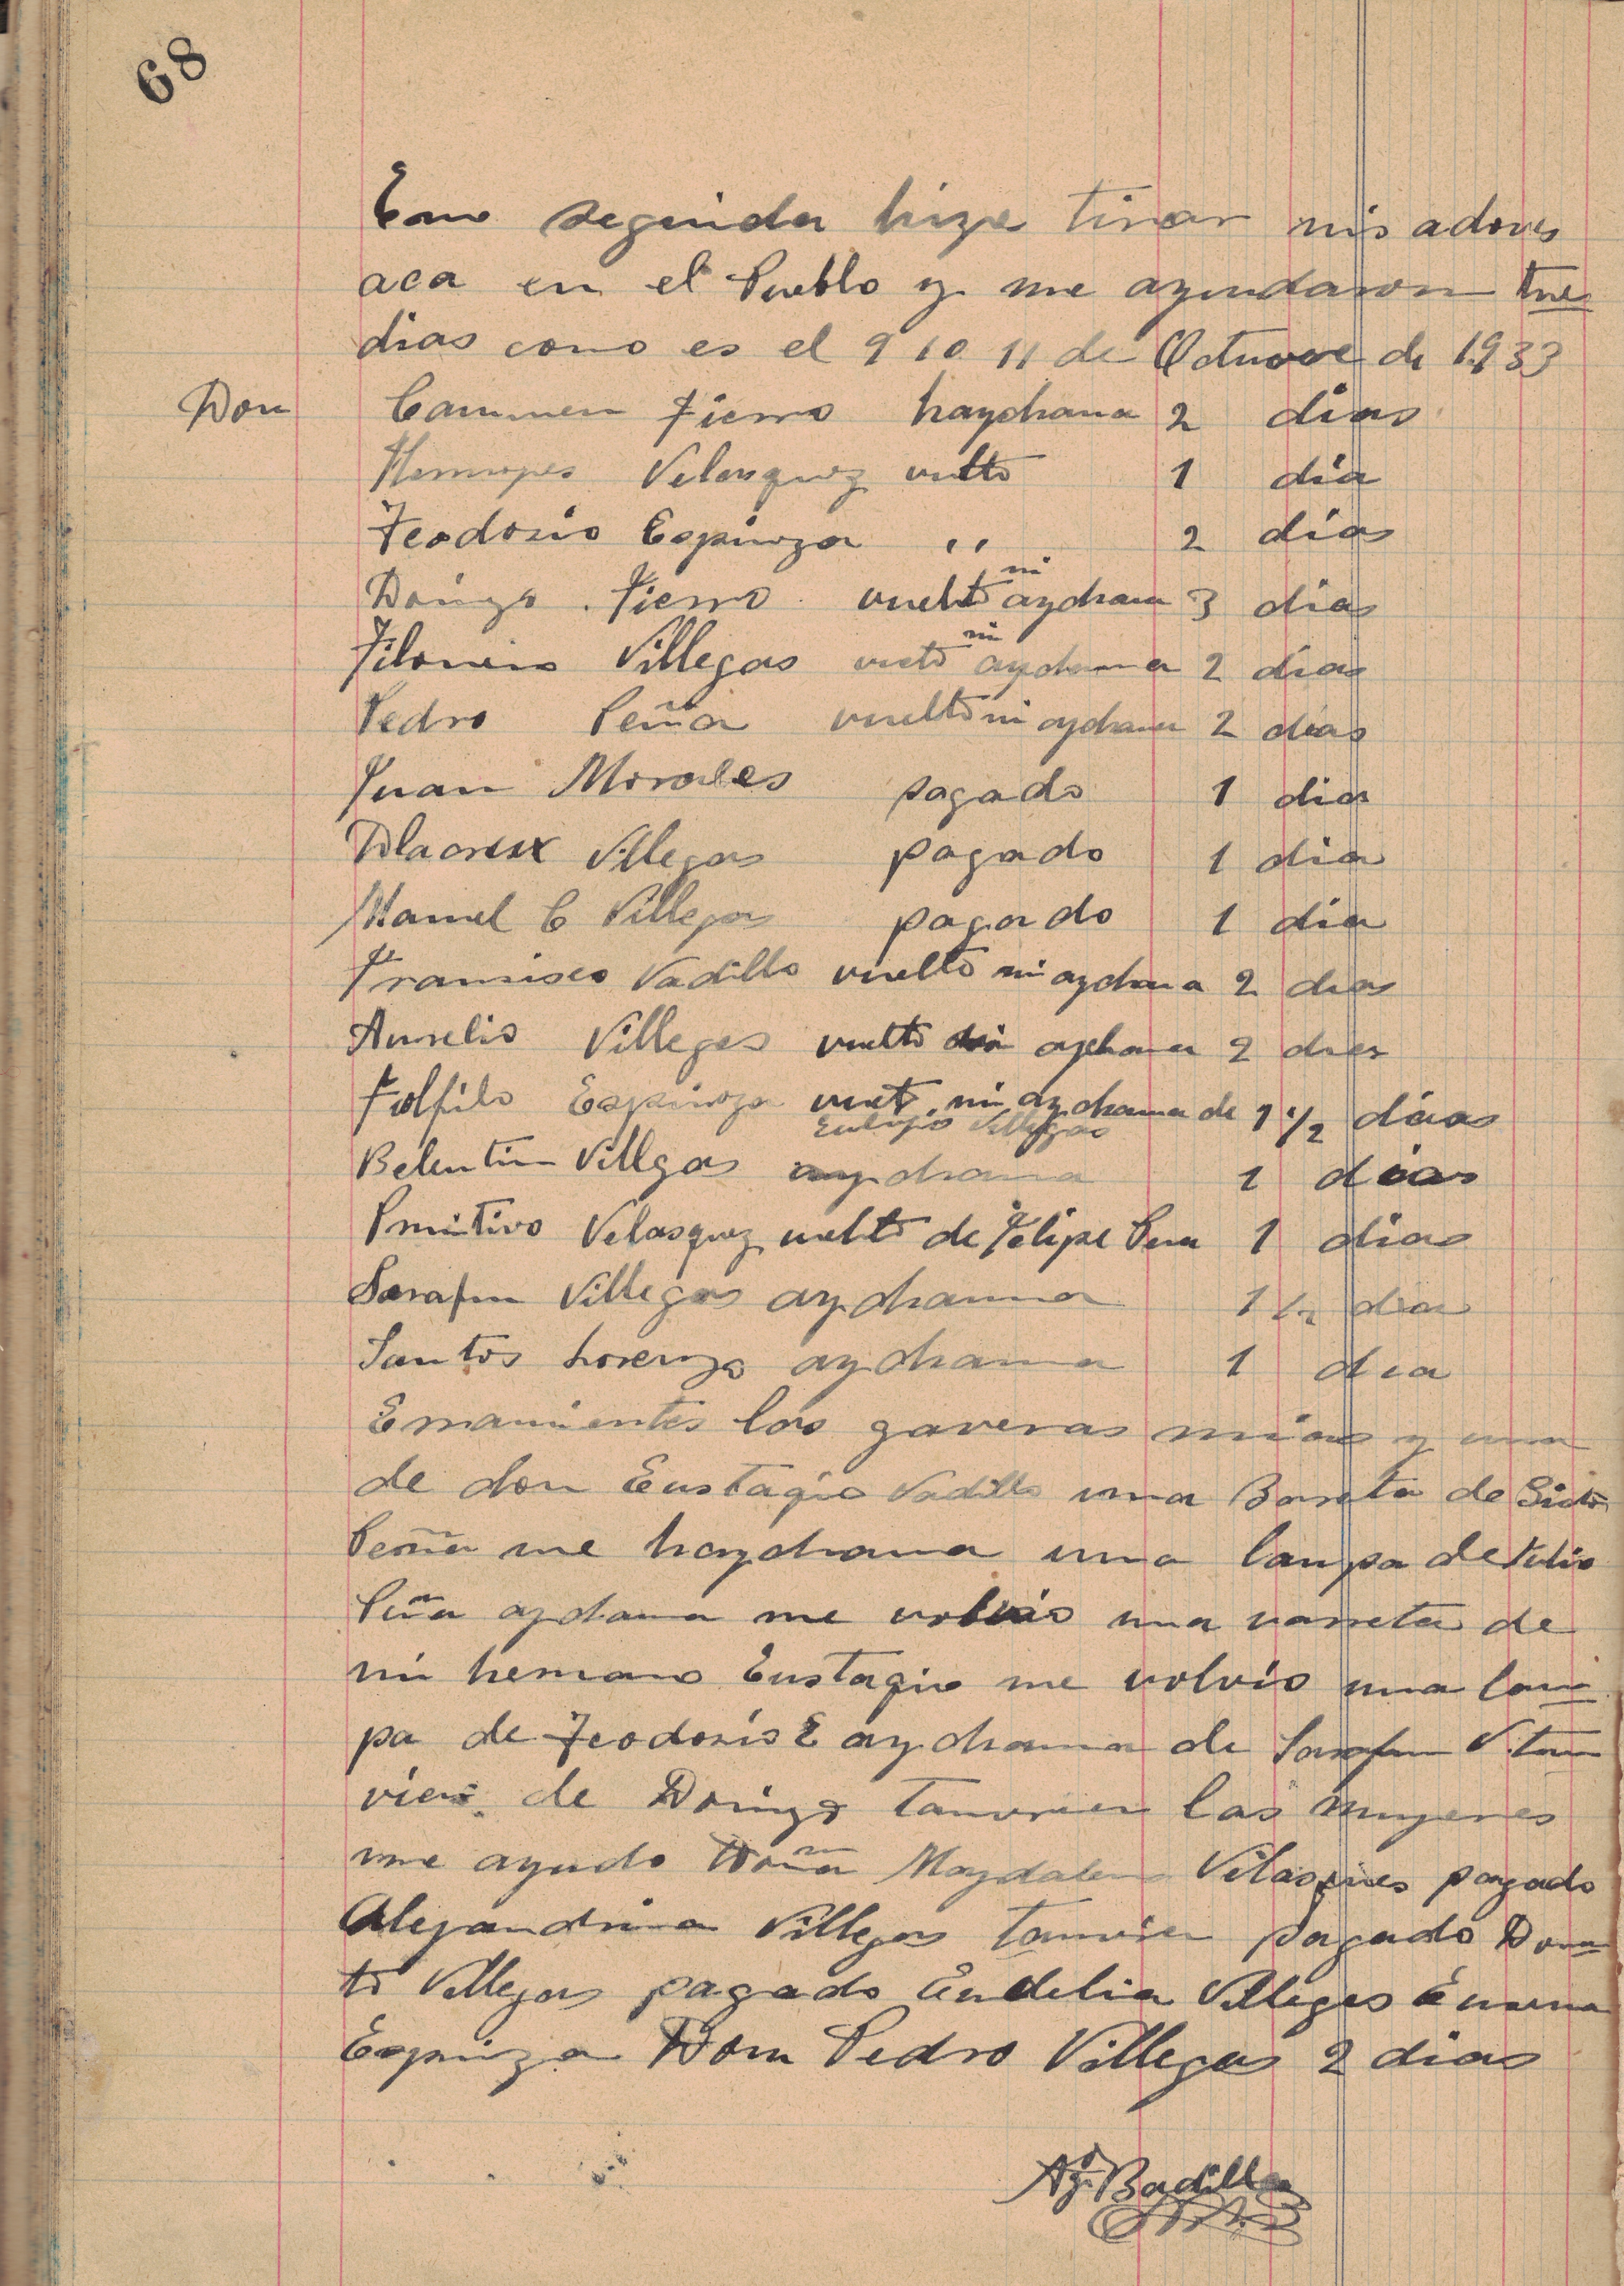 68
Em segida hize tirar mis adoves
aca en el Pueblo y me ayudaron tres
dias como es el 9 10 11 de Octuvre de 1933
Don Carmen Fierro haychana 2 dias
Velasquez vulto 1 dia
Teodosio Espinoza ,, 2 dias
Doingo Fierro vuelto mi aychana 3 dias
Filomino Villegas vueto mi aychana 2 dias
Pedro Peña vuelto mi aychana 2 dias
Juan Morales pagado 1 dia
Villegas pagado 1 dia
Manuel C Villegas pagado 1 dia
Francisco Vadillo vuelto mi aychana 2 dias
Aurelio Villegas vuelto mi aychana 2 dias
Espinoza vueto mi aychana de 1 1/2 dias
Eulogio Villegas
Belentin Villgas aychana 1 dias
Pmitivo Velasquez vuelto de Felipe Pena 1 dias
Sarafin Villegas aychanna 1 1/2 dia
Santos Lorenzo aychana 1 dia
las gaveras mias y una
de don Eustaqio Vadillo una Barreta de Sisto
Peña me haychana una lampa de Tulio
Peña aychana me volvio una varreta de
mi hermano Eustaqio me volvio una lam
pa de Teodosio E aychana de Sarafin V. tam
vien de Doingo tamvien las mugeres
me ayudo Doña Magdalena Velasques pagado
Alejandrina Villegas tamvien pagado Dona
to Villegas pagado Endelia Villegas Emma
Espinza Don Pedro Villegas 2 dias
Ag. Badillo